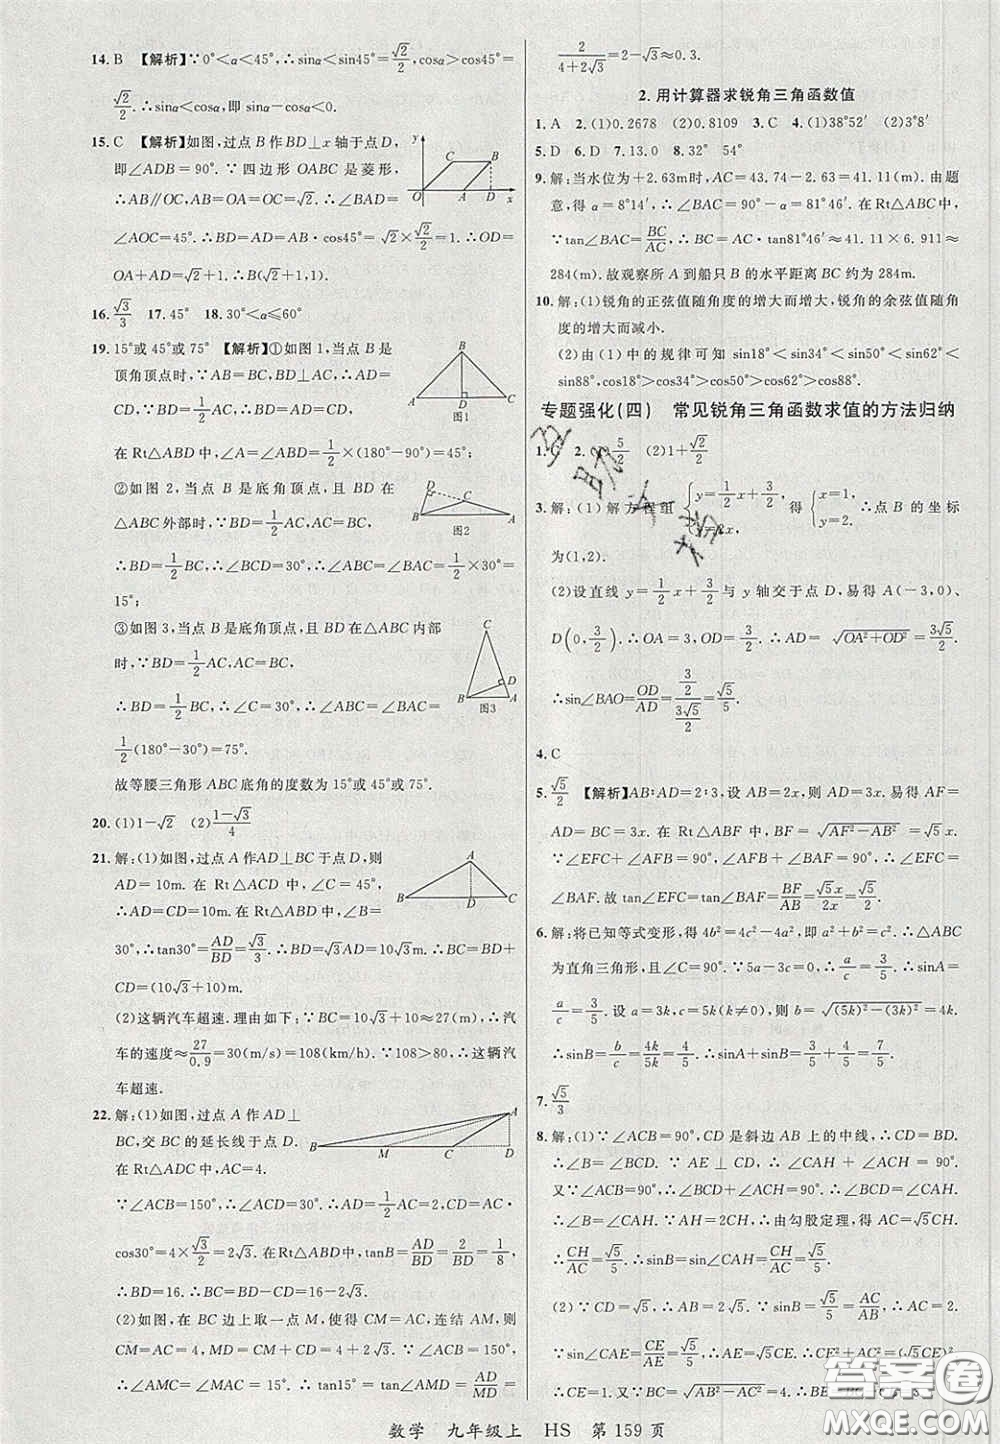 14. B 【解析】∵0°<α<45°,∴sinα<sin45°=√2/2,cosα>cos45°=
√2/2.∴sinα<cosα,即 sinα-cosα<0.
15. C 【解析】如图,过点 B作BD⊥x 轴于点D,
即∠ADB=90°.∵四边形 OABC 是菱形,
∴AB∥OC,AB=OA=OC=√2.∴∠BAD=
∠AOC=45°.∴BD=AD=AB·cos45°=√2×√2/2=1.∴OD=
OA+AD=√2+1.∴B(√2+1,1).
16. √3/3 17. 45° 18. 30°<α≤60°
19. 15°或 45°或 75° 【解析】①如图1,当点 B是
顶角顶点时,∵AB=BC,BD⊥AC,∴AD=CD.
∵BD=1/2AC,∴AD=BD=CD.
图1
在 Rt△ABD 中,∠A=∠ABD=1/2×(180°-90°)=45°;
②如图 2,当点 B 是底角顶点,且 BD 在
△ABC外部时,∵BD=1/2AC,AC=BC,
图2
∴BD=1/2BC,∴∠BCD=30°.∴∠ABC=1/2∠BCD=1/2×30°=
15°;
③如图 3,当点B是底角顶点,且BD在△ABC内部
时,∵BD=1/2AC,AC=BC,
∴BD=1/2BC,∴∠C=30°,∴∠ABC=∠A=
1/2(180°-30°)=75°.
图3
故等腰三角形 ABC底角的度数为15°或45°或75°.
20. (1)1-√2 (2)(1-√3)/4
21. 解:(1)如图,过点 A作AD⊥BC于点D,则
AD=10m.在 Rt△ACD 中,∠C=45°,
∴AD=CD=10m.在 Rt△ABD 中,∠B=
30°,∴tan30°=AD/BD=√3/3.∴BD=√3AD=10√3m.∴BC=BD+
CD=(10√3+10)m.
(2)这辆汽车超速.理由如下:∵BC=10√3+10≈27m,∴汽
车的速度≈27/0.9=30(m/s)=108(km/h).∵108>80,∴这辆汽
车超速.
22. 解:(1)如图,过点 A 作 AD⊥
BC,交 BC的延长线于点 D.
在 Rt△ADC 中,AC=4.
∵∠ACB=150°,∴∠ACD=30°.∴AD=1/2AC=2,CD=AC·
cos30°=4×√3/2=2√3.在 Rt△ABD中,tanB=AD/BD=2/BD=1/8,
∴BD=16.∴BC=BD-CD=16-2√3.
(2)如图,在 BC 边上取一点 M,使得 CM=AC,连结 AM,则
CM=AC=4,MD=CM+CD=4+2√3.∵∠ACB=150°,
∴∠AMC=∠MAC=15°.∴tan15°=tan∠AMD=AD/MD=
2/(4+2√3)=2-√3≈0.3.
2. 用计算器求锐角三角函数值
1. A 2. (1)0.2678 (2)0.8109 3. C 4. (1)38°52′ (2)3°8′
5. D 6. D 7. 13.0 8. 32° 54°
9. 解:当水位为+2.63m时,AC=43.74-2.63=41.11(m).由题
意,得 α=8°14′,∴∠BAC=90°-α=81°46′.在 Rt△ABC 中,
∵tan∠BAC=BC/AC,∴BC=AC·tan81°46′≈41.11×6.911≈
284(m).故观察所 A 到船只 B 的水平距离 BC 约为 284m.
10. 解:(1)锐角的正弦值随角度的增大而增大,锐角的余弦值随角
度的增大而减小.
(2)由(1)中的规律可知 sin18°<sin34°<sin50°<sin62°<
sin88°,cos18°>cos34°>cos50°>cos62°>cos88°.
专题强化(四) 常见锐角三角函数求值的方法归纳
1. C 2. (1)5/2 (2)1+√2/2
3. 解:(1)解方程组{y=1/2x+3/2, 得{x=1, y=2. ∴点 B 的坐标
为(1,2).
(2)设直线 y=1/2x+3/2与 y轴交于点 D,易得 A(-3,0)、
D(0,3/2).∴OA=3,OD=3/2.∴AD=√(OA²+OD²)=3√5/2.
∴sin∠BAO=OD/AD=(3/2)/(3√5/2)=√5/5.
4. C
5. √5/2 【解析】AB∶AD=2∶3,设 AB=2x,则 AD=3x.易得 AF=
AD=BC=3x.在 Rt△ABF 中,BF=√(AF²-AB²)=√5x.
∵∠EFC+∠AFB=90°,∠AFB+∠BAF=90°,∴∠EFC=
∠BAF.故 tan∠EFC=tan∠BAF=BF/AB=√5x/2x=√5/2.
6. 解:将已知等式变形,得 4b²=4c²-4a²,即 a²+b²=c².∴△ABC
为直角三角形,且∠C=90°.∵5a-3c=0,∴a/c=3/5.∴sinA=
a/c=3/5.设 a=3k,c=5k(k≠0),则b=√((5k)²-(3k)²)=4k.
∴sinB=b/c=4k/5k=4/5.∴sinA+sinB=3/5+4/5=7/5.
7. √5/3
8. 解:(1)∵∠ACB=90°,CD是斜边 AB 上的中线,∴CD=BD.
∴∠B=∠BCD.∵AE⊥CD,∴∠ACD+∠CAH=90°.
又∵∠ACB=∠BCD+∠ACH=90°,∴∠B=∠BCD=∠CAH.
又∵AH=2CH,∴由勾股定理,得 AC=√5CH.
∴CH/AC=CH/√5CH=√5/5.∴sinB=sin∠CAH=CH/AC=√5/5.
(2)∵CD=√5,∴AB=2√5.∵sinB=√5/5=AC/AB,∴AC=2.
∵sin∠CAE=CE/AE=√5/5,∴AE=√5CE.∴AC=2CE=2.
∴CE=1.∵BC=√(AB²-AC²)=4,∴BE=BC-CE=3.
数学 九年级上 HS 第 159 页
答案圈
MXQE.COM